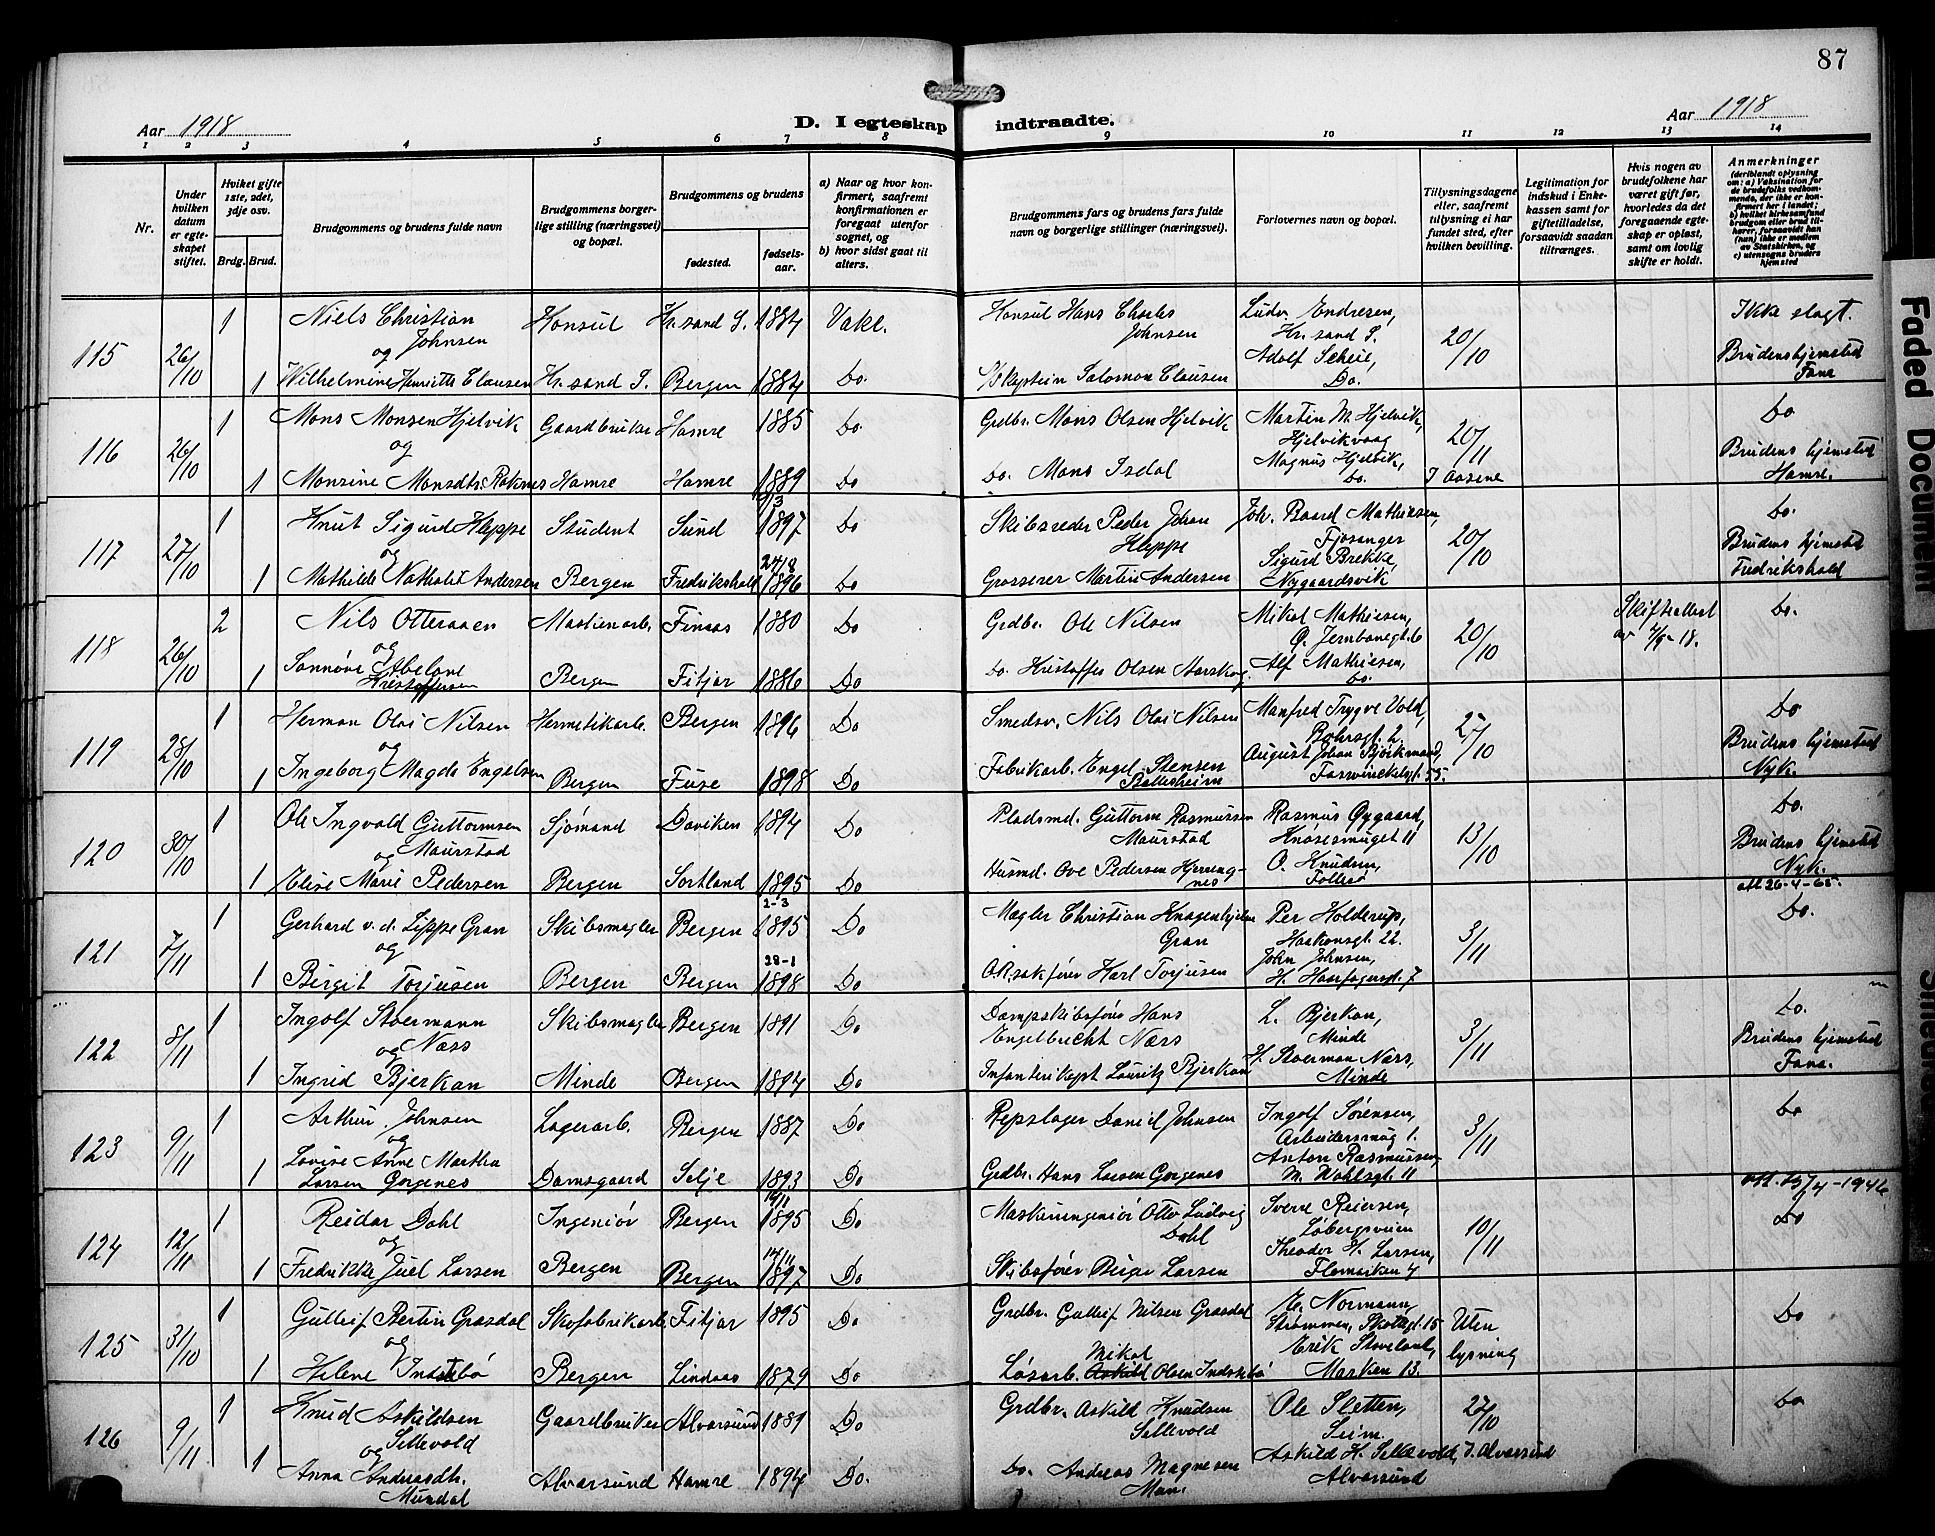 87
Aar 1918
D. I egteskap indtraadte.
Aar 1918
1 2 3 4 5 6 7 8 9 10 11 12 13 14
Nr.
Under hvilken datum er egteskapet stiftet.
Hviket gifte 1ste, 2det, 3dje osv.
Brdg. Brud.
Brudgommens og brudens fulde navn
Brudgommens borgerlige stilling (næringsvei) og bopæl.
Brudgommens og brudens
fødested.
fødselsaar.
a) Naar og hvor konfirmert, saafremt konfirmationen er foregaat utenfor sognet, og
b) hvor sidst gaat til alters.
Brudgommens fars og brudens fars fulde navn og borgerlige stillinger (næringsvei).
Forlovernes navn og bopæl.
Tillysningsdagene eller, saafremt tillysning ei har fundet sted, efter hvilken bevilling.
Legitimation for indskud i Enkekassen samt for giftetilladelse, forsaavidt saadan tiltrænges.
Hvis nogen av brudefolkene har været gift før, hvorledes da det foregaaende egteskap er opløst, samt om lovlig skifte er holdt.
Anmerkninger
(deriblandt oplysning om: a) Vaksination for de brudefolks vedkommende, der ikke er konfirmert her i landet; b) hvilket kirkesamfund brudgom eller brud tilhører, forsaavidt han (hun) ikke er medlem av Statskirken, og c) utensogns bruders hjemsted
115 26/10 1 Niels Christian Johnsen Konsul Kr.sand S. 1884 Vakc. Konsul Hans Charles Johnsen Ludv. Endresen, Kr.sand S. 20/10 Ikke slegt.
og
1 Wilhelmine Henriette Clausen Kr.sand S. Bergen 1884 Do. Skeptein Salomon Clausen Adolf Scheie, Do. Brudens hjemsted Fana
116 26/10 1 Mons Monsen Hjelvik Gaardbruker Hamre 1885 Do. Grdbr. Mons Olsen Hjelvik Martin M. Hjelvik, Hjelvikvaag 20/11 Do
og
1 Monsine Monsdtr. Røknes Hamre Hamre 1889 Do Do. Mons Isdal Magnus Hjelvik, Do. I Aasene Brudens hjemsted Hamre.
117 27/10 1 Knut Sigurd Kleppe Student Sund 1897 Do Skibsreder Peder Johan Kleppe Joh. Baard Mathiesen, Fjøsanger 20/10 Do.
og
1 Mathilde Nathalie Andersen Bergen Fredrikshald 24/8 1896 Do Grosserer Martin Andersen Sigurd Brekke, Nygaardsvik Brudens hjemsted Fredrikshald
118 26/10 2 Nils Otteraaen Maskinarb. Finaas 1880 Do Grdbr. Ole Nilsen Mikal Mathiesen, Ø. Jernbanegt. 6 20/10 Skifteattest av 4/9-18. Do.
og
1 Sønnøve Abelone Kristoffersen Bergen Fitjar 1886 Do Do. Kristoffer Olsen Aarskog Alf Mathiesen, Do.
119 28/10 1 Herman Olai Nilsen Hermetikarb. Bergen 1896 Do Smedsv. Nils Olai Nilsen Manfred Trygve Vold, Bøhrsgt. 2 27/10 Do
og
1 Ingeborg Magda Engelsen Bergen Fuse 1898 Do Fabrikarb. Engel Stensen August Johan Bjørkmand, Brudens hjemsted Nyk.
120 30/10 1 Ole Ingvald Guttormsen Maurstad Sjømand Daviken 1894 Do Pladsmd. Guttorm Rasmussen Maurstad Rasmus Øygaard, Knøsesmuget 11 13/10 Do.
og
1 Elise Marie Pedersen Bergen Sortland 1895 Do Husmd. Ove Pedersen Hjerringnes O. Knudsen, Follesø Brudens hjemsted Nyk.
att 26-4-65.
121 7/11 1 Gerhard v.d. Lippe Gran Skibsmægler Bergen 2-3 1895 Do Mægler Christian Knagenhjelm Gran Per Holderup, Haakonsgt. 22. 3/11 Do.
og
1 Birgit Torjusen Bergen Bergen 28-1 1898 Do O.R.sakfører Karl Torjusen John Johnsen, H. Haarfagersgt. 7
122 8/11 1 Ingolf Stoermann Næss Skibsmægler Bergen 1891 Do Dampskibsfører Hans Engelbrecht Næss L. Bjerkan, Minde 3/11 Do.
og
1 Ingrid Bjerkan Minde Bergen 1894 Do Infanterikapt. Lauritz Bjerkan H. Stoerman Næss, Minde Brudens hjemsted Fana.
123 9/11 1 Arthur Johnsen Lagerarb. Bergen 1887 Do Repslager Daniel Johnsen Ingolf Sørensen, Arbeidersmug 1. 3/11 Do
og
1 Lovise Anne Martha Larsen Gangenes Damsgaard Selje 1893 Do Grdbr. Hans Larsen Gangenes Anton Rasmussen, M. Wahlsgt. 11
att. 25/4-1946
124 12/11 1 Reidar Dahl Ingeniør Bergen 1895 Do Maskiningeniør Otto Ludvig Dahl Sverre Reiersen, Løbergsveien 10/11 Do
og
1 Fredrikke Juel Larsen Bergen Bergen 14/11 1897 Do Skibsfører Birger Larsen Theodor H. Larsen,
125 31/10 1 Gulleif Bertin Grasdal Skofabrikarb. Fitjar 1895 Do Grdbr. Gulleif Nilsen Graasdal E. Normann, Strømmen, Skottegt. 15 Uten lysning Do
og
1 Helene Indrebø Bergen Lindaas 1879 Do Løsarb. Mikal Olsen Indrebø Erik Stoveland, Marken 13.
126 9/11 1 Knud Askildsen Sellevold Gaardbruker Alversund 1889 Do Grdbr. Askild Knudsen Sellevold Ole Sletten, Seim. 27/10 Do
og
1 Anna Andreasdtr. Mundal Alversund Hamre 1894 Do. Do. Andreas Magnesen Askild K. Sellevold, Alversund I Alversund
Faded Document